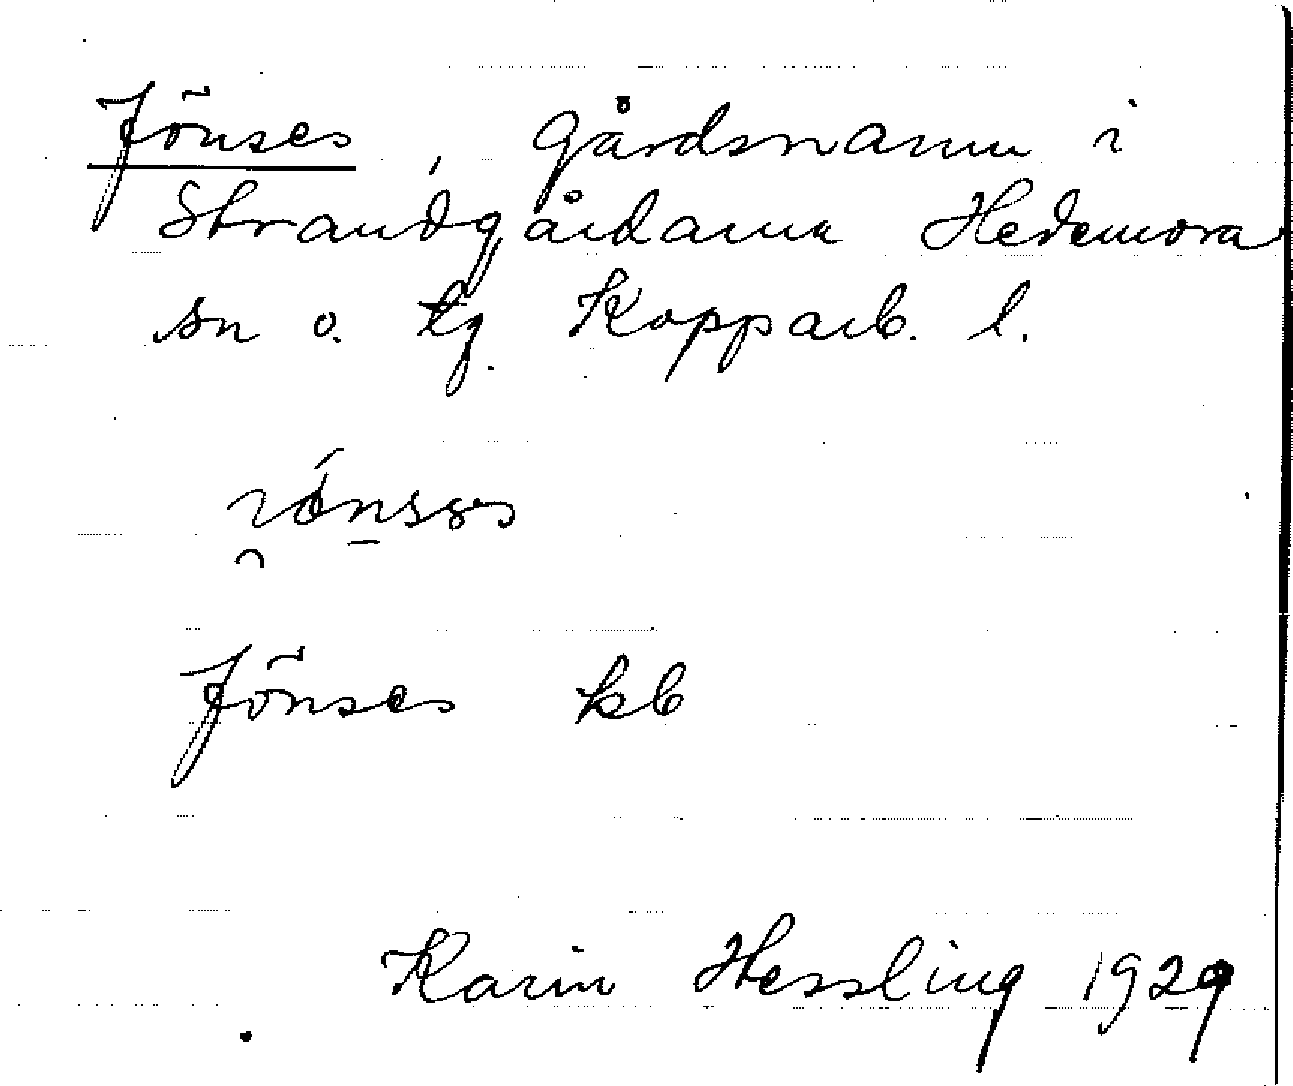 Jönses, Gårdsnamn i
Strandgårdarna Hedemora
sn o. tg. Kopparb. l.
Jönses kb
Karin Hessling 1929